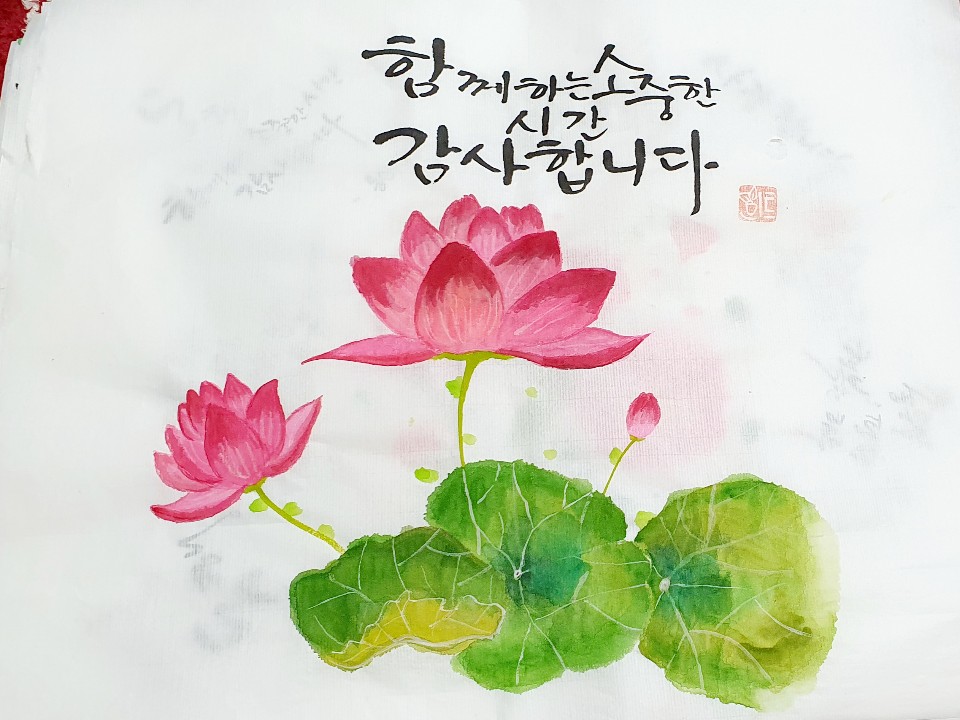 함께하는 소중한
시간
감사합니다